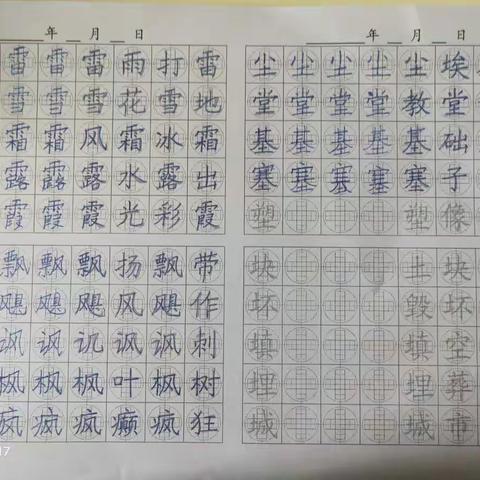 年 月 日
雷 雷 雷 雨 打 雷
雪 雪 雪 花 雪 地
霜 霜 风 霜 冰 霜
露 露 露 水 露 出
霞 霞 霞 光 彩 霞
飘 飘 飘 扬 飘 带
飓 飓 飓 风 飓 作
讽 讽 讥 讽 讽 刺
枫 枫 枫 叶 枫 树
疯 疯 疯 癫 疯 狂
年 月 日
尘 尘 尘 尘 尘 埃
堂 堂 堂 堂 教 堂
基 基 基 基 基 础
塞 塞 塞 塞 塞 子
塑 塑 像
块 土 块
坏 毁 坏
填 填 空
埋 埋 葬
城 城 市
17